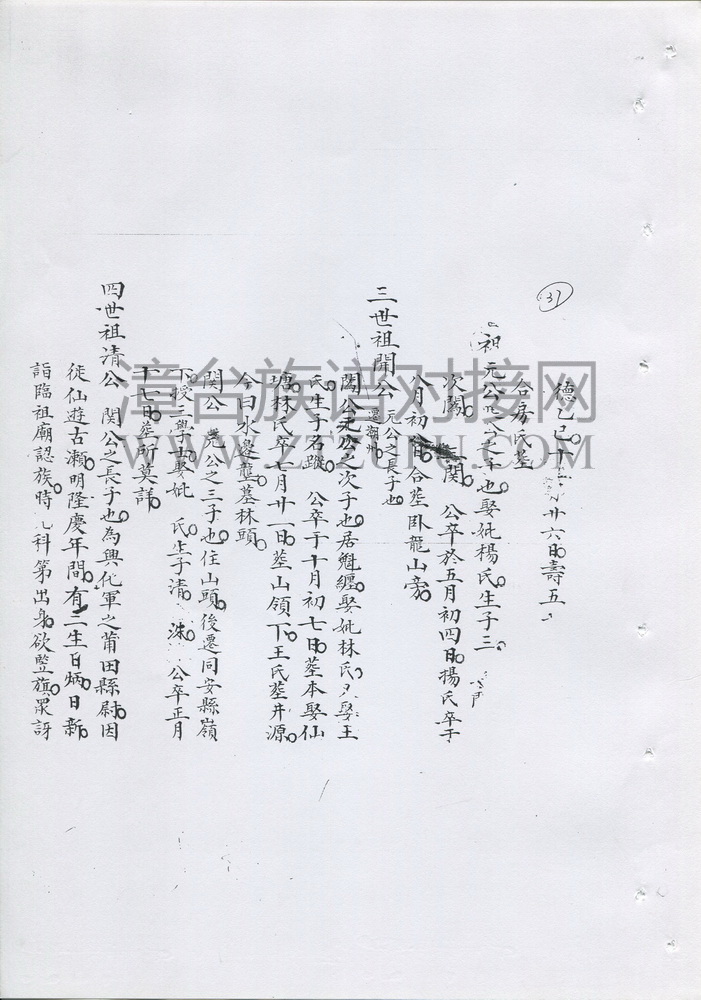 37
德乙巳十 廿六日壽五
合房氏塟
祖元公 公之子也娶妣楊氏生子三
次闊 三關 公卒於五月初四日楊氏卒于
八月初 日合塟卧龍山旁
三世祖開公 元公之長子也 遷潮州
闊公元公之次子也居魁纏娶妣林氏又娶王
氏生子名蹤 公卒于十月初七日塟本娶仙
塘林氏卒七月廿一日塟山領下王氏塟井源
今曰水邊壟墓林頭
関公 元公之三子也住山頭後遷同安縣嶺
下授三學士娶妣 氏生子清 洙 公卒正月
十七日塟所莫詳
四世祖清公 関公之長子也為興化軍之莆田縣尉因
徒仙遊古瀨明隆慶年間有二生曰炳日新
詣臨祖廟認族時 科第出身欲竪旗眾訝
漳台族谱对接网
WWW.ZTZUPU.COM